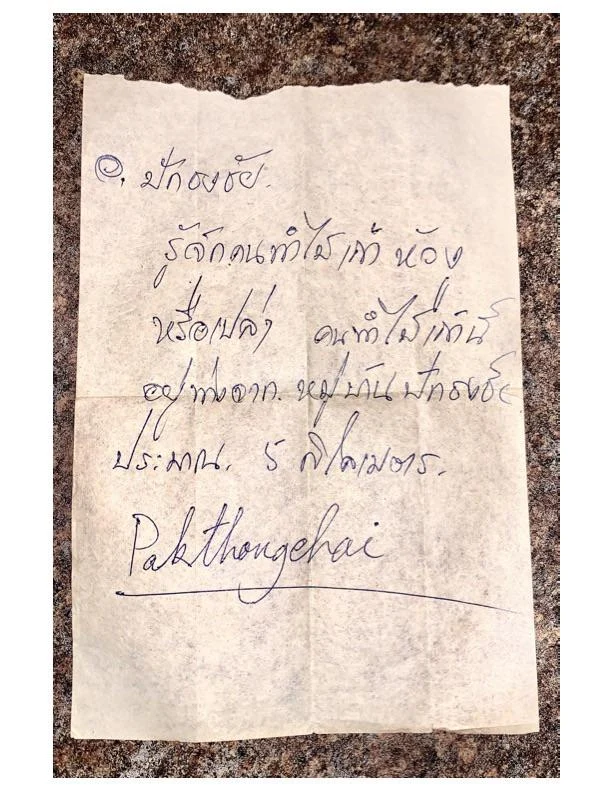 อ. ปักธงชัย.
รู้จักคนทำไม้เก่า ห้อง
หรือเปล่า คนทำไม้เก่านี้
อยู่ห่างจาก. หมู่บ้าน ปักธงชัย
ประมาณ. 5 กิโลเมตร.
Pakthongchai